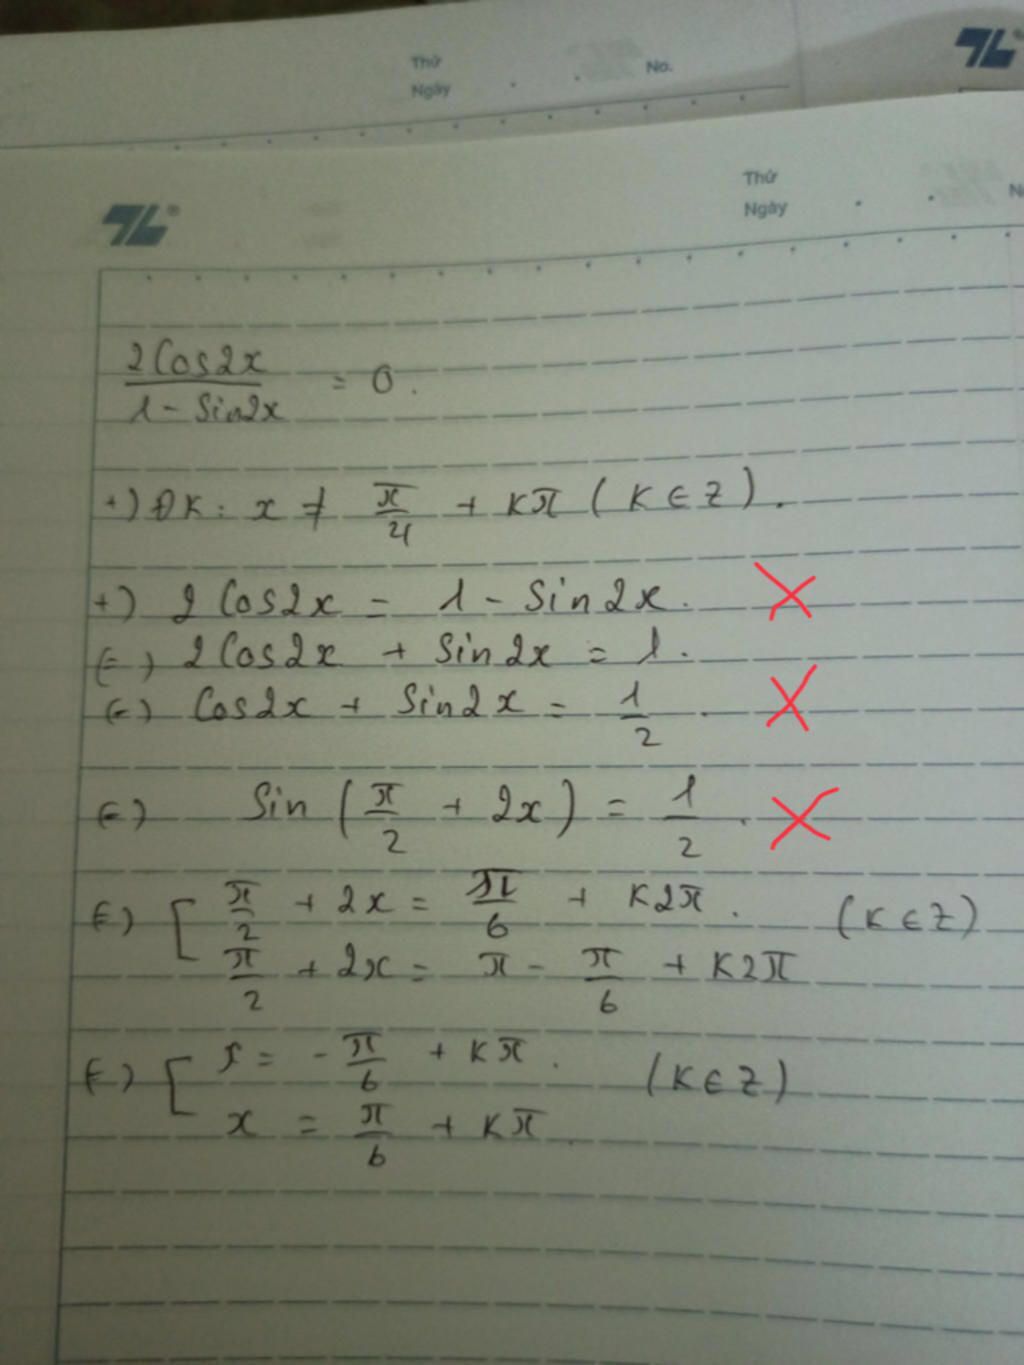 Thứ
Ngày
No.
Thứ
Ngày
2Cos2x / 1 - Sin2x = 0.
+) ĐK: x ≠ π/4 + Kπ (K ∈ Z).
+) 2Cos2x = 1 - Sin2x.
(=) 2Cos2x + Sin2x = 1.
(=) Cos2x + Sin2x = 1/2.
(=) Sin (π/2 + 2x) = 1/2.
(=) [ π/2 + 2x = π/6 + K2π. (K ∈ Z)
π/2 + 2x = π - π/6 + K2π
(=) [ x = -π/6 + Kπ. (K ∈ Z)
x = π/6 + Kπ.